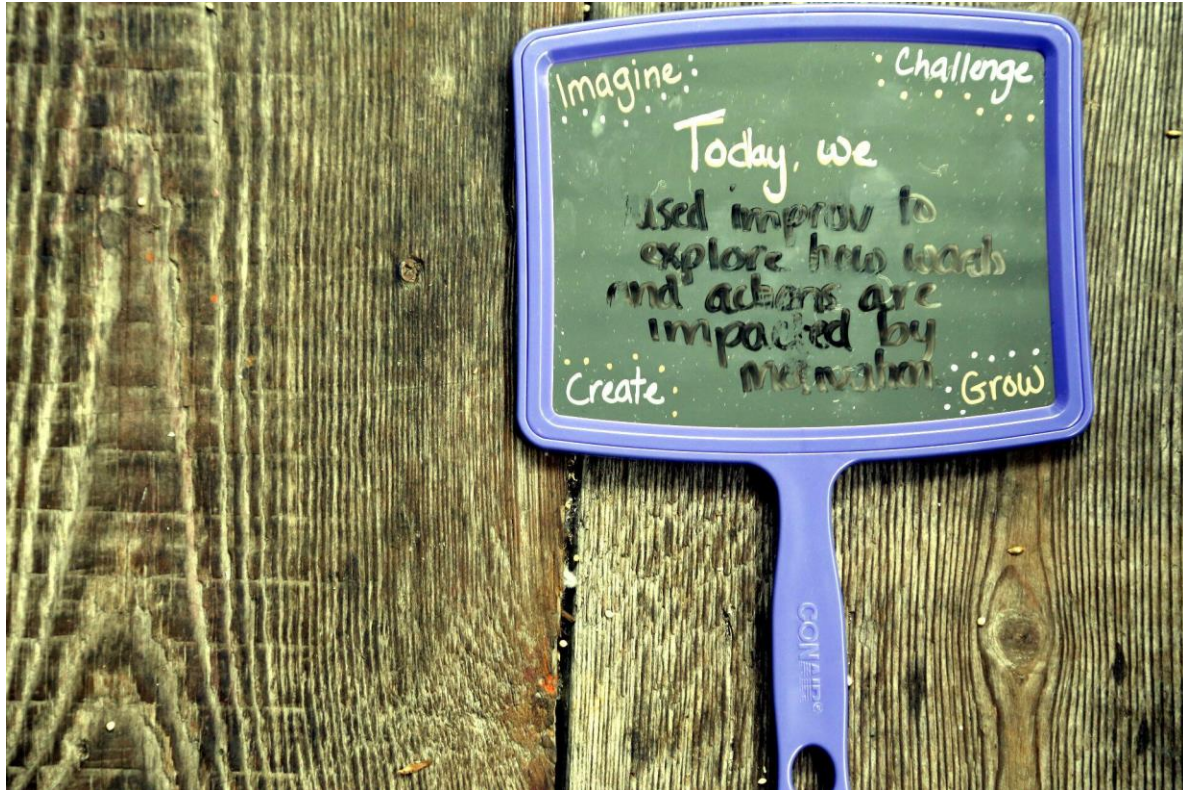 Imagine
Challenge
Today, we
used improv to
explore how words
and actions are
impacted by
motivation
Create
Grow
CONAIR®